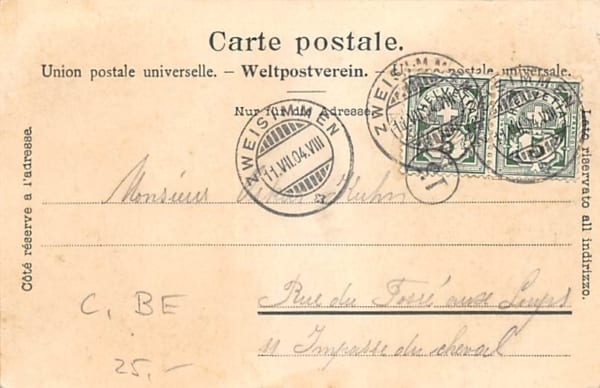 Carte postale.
Union postale universelle. – Weltpostverein. – Unione postale universale.
Nur für die Adresse.
ZWEISIMMEN
11.VII.04.VIII
ZWEISIMMEN
HELVETIA
HELVETIA
Côté réservé a l'adresse.
Lato riservato all indirizzo.
Monsieur Kuhn
Rue du Fossé aux Loups
11 Impasse du cheval
C, BE
25,-